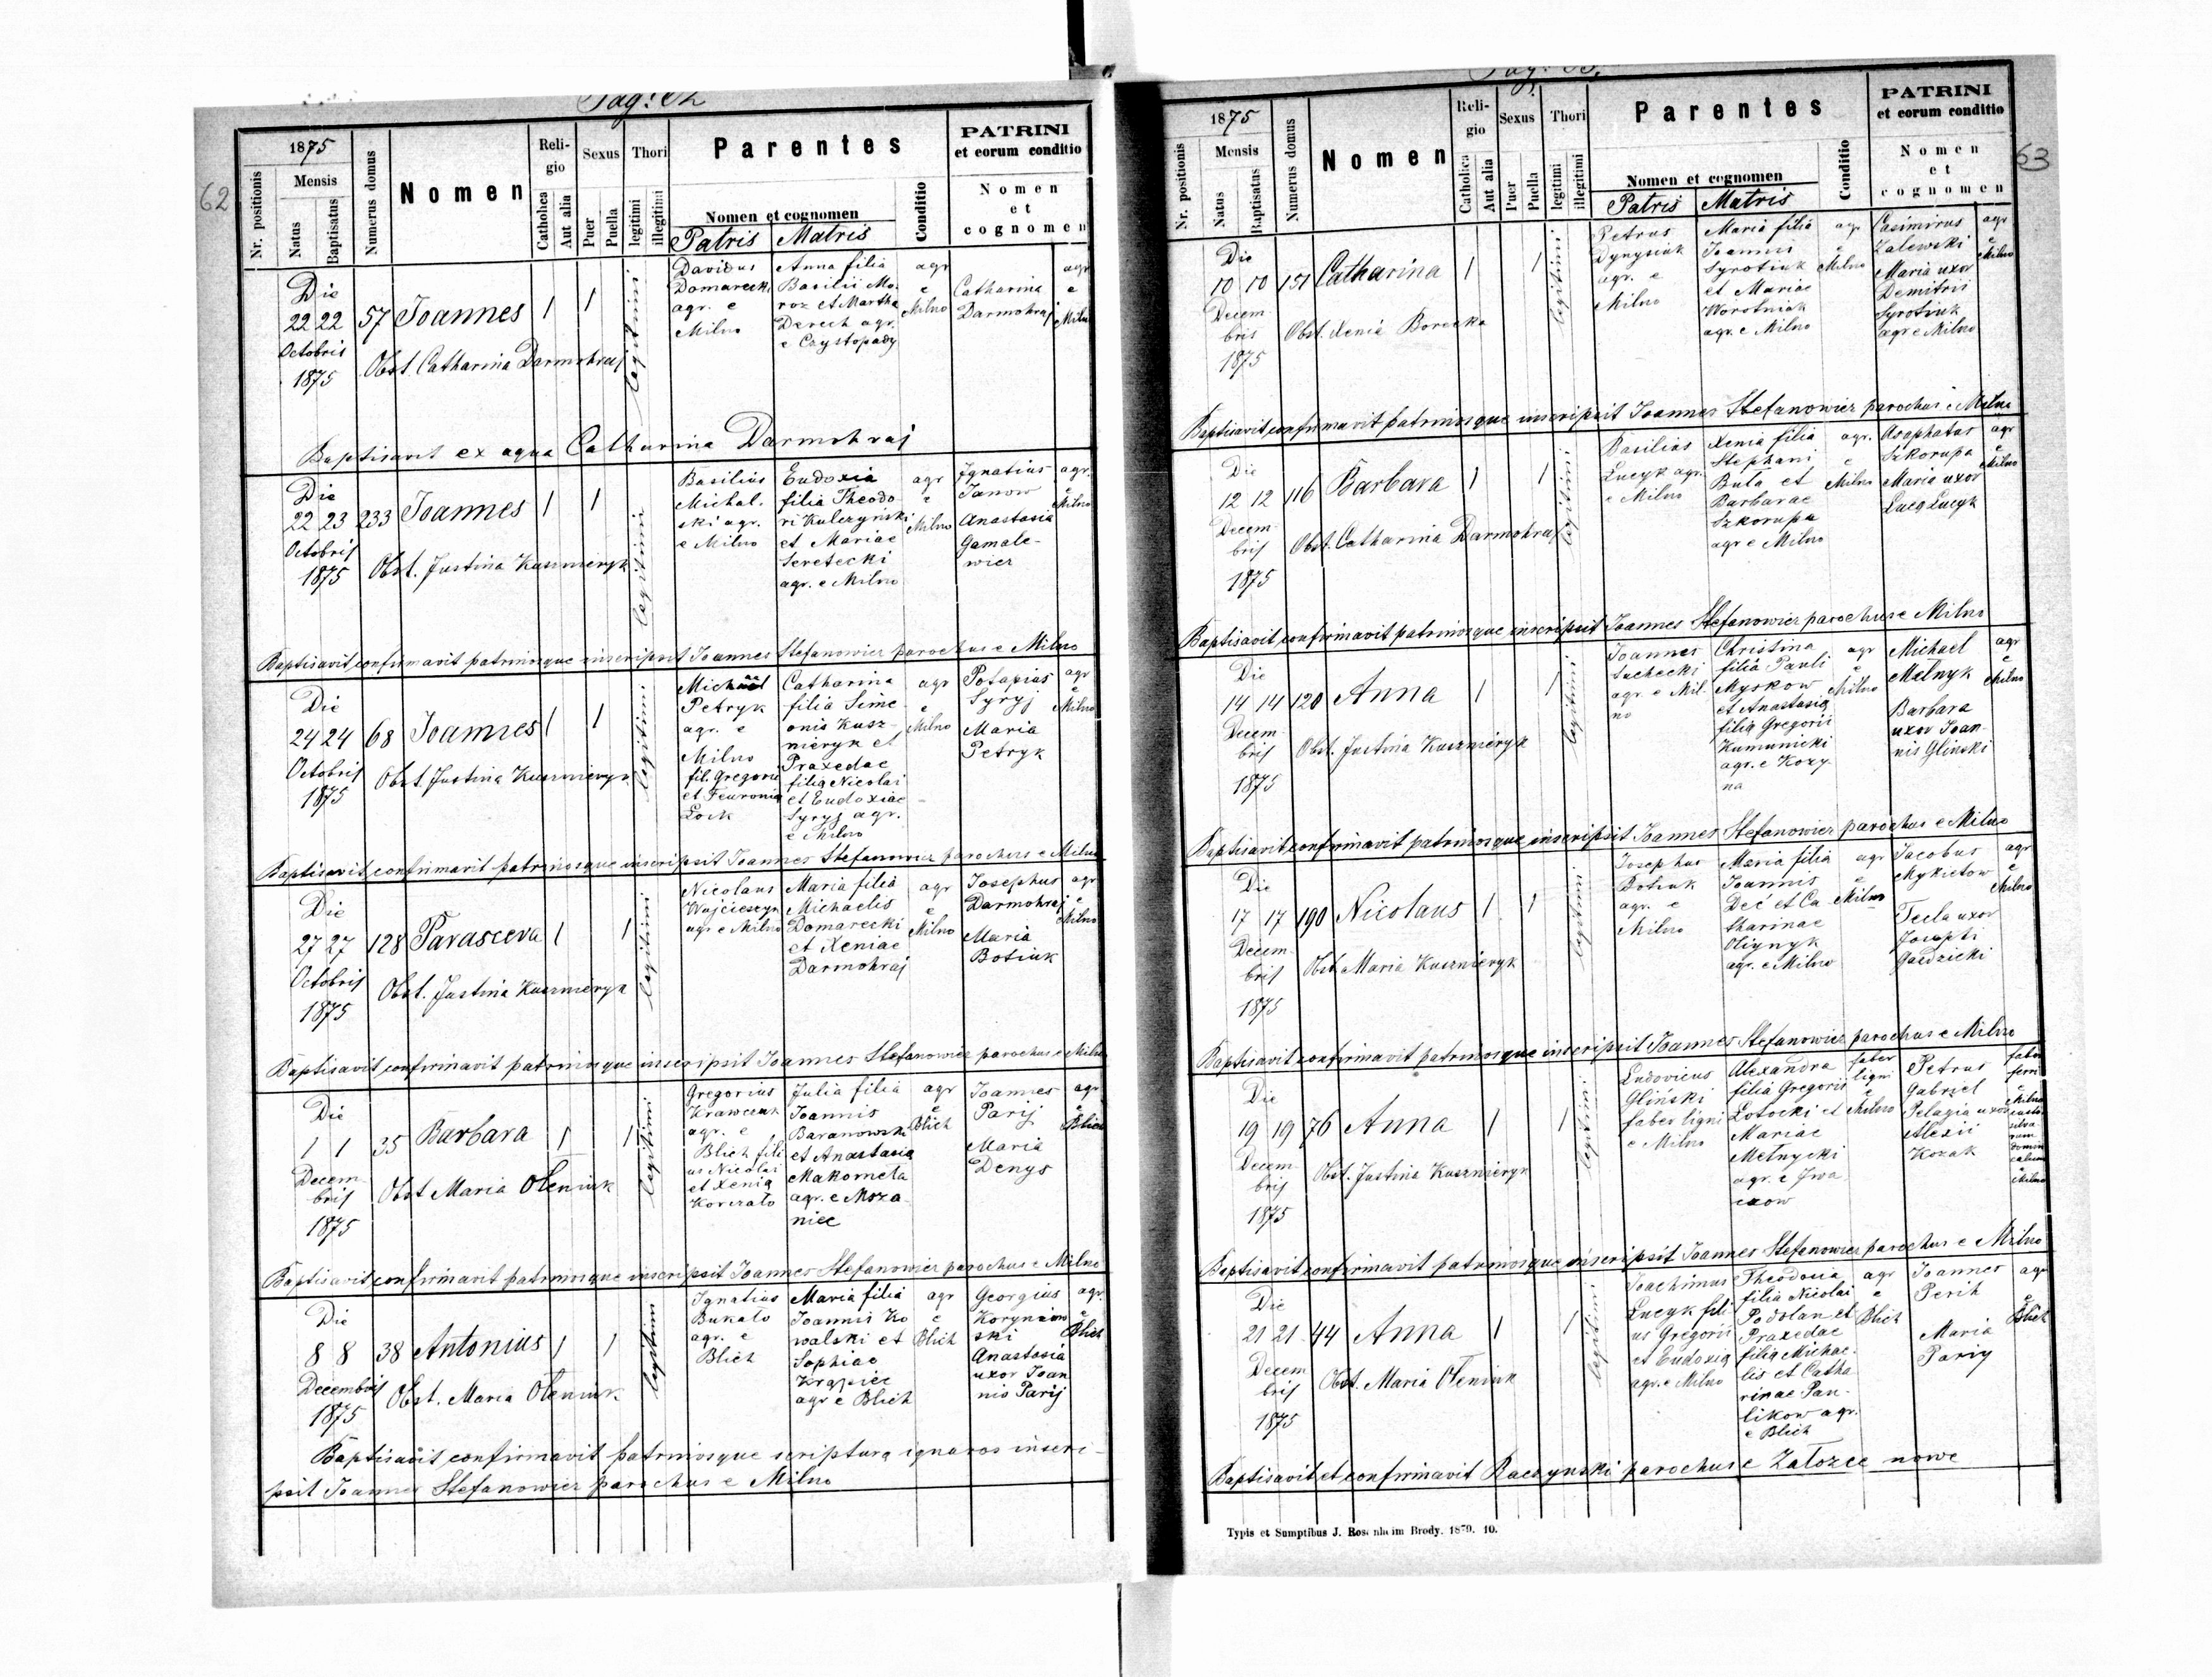 Pag: 62
62
1875
Mensis
Nr. positionis
Natus
Baptisatus
Numerus domus
Nomen
Religio
Catholica
Aut alia
Sexus
Puer
Puella
Thori
legitimi
illegitimi
Parentes
Nomen et cognomen
Patris Matris
Conditio
PATRINI
et eorum conditio
Nomen
et
cognomen
Die
22 22 57 Joannes 1 1 legitimi
Octobris
1875
Obst. Catharina Darmohraj
Davidus
Domarecki
agr. e
Milno
Anna filia
Basilii Mo-
roz et Martha
Derech agr.
e Czystopady
agr
e
Milno
Catharina
Darmohraj
agr
e
Milno
Baptisavit ex aqua Catharina Darmohraj
Die
22 23 233 Joannes 1 1 legitimi
Octobris
1875
Obst. Justina Kuszmieryk
Basilius
Michal-
ski agr.
e Milno
Eudoxia
filia Theodo-
ri Kulczyński
et Mariae
Seretecki
agr. e Milno
agr
e
Milno
Ignatius
Janow
Anastasia
Gamale-
wicz
agr.
e
Milno
Baptisavit confirmavit patrinosque inscripsit Joannes Stefanowicz parochus e Milno
Die
24 24 68 Joannes 1 1 legitimi
Octobris
1875
Obst. Justina Kuszmieryk
Michael
Petryk
agr. e
Milno
fil. Gregorii
et Feuronia
Łoik
Catharina
filia Sime-
onis Kusz-
mieryk et
Praxedae
filia Nicolai
et Eudoxiae
Syryj agr.
e Milno
agr
e
Milno
Potapius
Syryj
Maria
Petryk
agr
e
Milno
Baptisavit confirmavit patrinosque inscripsit Joannes Stefanowicz parochus e Milno
Die
27 27 128 Parasceva 1 1 legitimi
Octobris
1875
Obst. Justina Kuszmieryk
Nicolaus
Wojcieszyn
agr e Milno
Maria filia
Michaelis
Domarecki
et Xeniae
Darmohraj
agr
e
Milno
Josephus
Darmohraj
Maria
Botiuk
agr
e
Milno
Baptisavit confirmavit patrinosque inscripsit Joannes Stefanowicz parochus e Milno
Die
1 1 35 Barbara 1 1 legitimi
Decem-
bris
1875
Obst Maria Oleniuk
Gregorius
Krawczuk
agr. e
Blich fili-
us Nicolai
et Xenia
Julia filia
Joannis
Baranowski
et Anastasia
Makometa
agr. e Msza-
niec
agr
e
Blich
Joannes
Parij
Maria
Denys
agr
e
Blich
Baptisavit confirmavit patrinosque inscripsit Joannes Stefanowicz parochus e Milno
Die
8 8 38 Antonius 1 1 legitim
Decembris
1875
Obst. Maria Oleniuk
Ignatius
Bukało
agr. e
Blich
Maria filia
Joannis Ko-
walski et
Sophiae
Krapiec
agr e Blich
agr
e
Blich
Georgius
Korynow
ski
Anastasia
uxor Joan
nis Parij
agr.
e
Blich
Baptisavit confirmavit patrinosque scriptura ignaros inscri-
psit Joannes Stefanowicz parochus e Milno
63
1875
Mensis
Nr. positionis
Natus
Baptisatus
Numerus domus
Nomen
Religio
Catholica
Aut alia
Sexus
Puer
Puella
Thori
legitimi
illegitimi
Parentes
Nomen et cognomen
Patris Matris
Conditio
PATRINI
et eorum conditio
Nomen
et
cognomen
Die
10 10 151 Catharina 1 1 legitimi
Decem
bris
1875
Obst. Xenia Borecka
Petrus
Dynysiuk
agr. e
Milno
Maria filia
Joannis
Syrotiuk
et Mariae
Worotniak
agr. e Milno
agr
e
Milno
Casimirus
Zalewski
Maria uxor
Demitrii
Syrotiuk
agr e Milno
agr
e
Milno
Baptisavit confirmavit patrinosque inscripsit Joannes Stefanowicz parochus e Milno
Die
12 12 116 Barbara 1 1 legitimi
Decem-
bris
1875
Obst. Catharina Darmohraj
Basilius
Łucyk agr.
e Milno
Xenia filia
Stephani
Buta et
Barbarae
Szkorupa
agr e Milno
agr.
e
Milno
Asaphatas
Szkorupa
Maria uxor
Luca Łucyk
agr
e
Milno
Baptisavit confirmavit patrinosque inscripsit Joannes Stefanowicz parochus e Milno
Die
14 14 120 Anna 1 1 legitimi
Decem
bris
1875
Obst. Justina Kuszmieryk
Joannes
Suchecki
agr. e Mil-
no
Christina
filia Pauli
Myskow
et Anastasia
filia Gregorii
Kumunicki
agr. e Kozy
na
agr
e
Milno
Michael
Melnyk
Barbara
uxor Joan-
nis Gliński
agr
e
Milno
Baptisavit confirmavit patrinosque inscripsit Joannes Stefanowicz parochus e Milno
Die
17 17 190 Nicolaus 1 1 legitimi
Decem-
bris
1875
Obst Maria Kuszmieryk
Josephus
Botiuk
agr. e
Milno
Maria filia
Joannis
Deć et Ca-
tharinae
Oliynyk
agr. e Milno
agr
e
Milno
Jacobus
Mykietow
Tecla uxor
Josephi
Gazdzicki
agr
e
Milno
Baptisavit confirmavit patrinosque inscripsit Joannes Stefanowicz parochus e Milno
Die
19 19 76 Anna 1 1 legitimi
Decem-
bris
1875
Obst. Justina Kuszmieryk
Ludovicus
Gliński
faber ligni
e Milno
Alexandra
filia Gregorii
Łotocki et
Mariae
Melnycki
agr. e Iwa
czow
faber
ligni
e
Milno
Petrus
Gabriel
Pelagia uxor
Alexii
Kozak
faber
ferri
e
Milno
e
Milno
Baptisavit confirmavit patrinosque inscripsit Joannes Stefanowicz parochus e Milno
Die
21 21 44 Anna 1 1 legitimi
Decem
bris
1875
Obst. Maria Oleniuk
Joachimus
Łucyk fili
us Gregorii
et Eudoxia
agr. e Milno
Theodosia
filia Nicolai
Podolan et
Praxedae
filia Michae-
lis et Catha
rinae Pan-
likow agr.
e Blich
agr
e
Blich
Joannes
Perih
Maria
Pariy
agr
e
Blich
Baptisavit et confirmavit Raczynski parochus e Załozce nowe
Typis et Sumptibus J. Rosenheim Brody. 1879. 10.